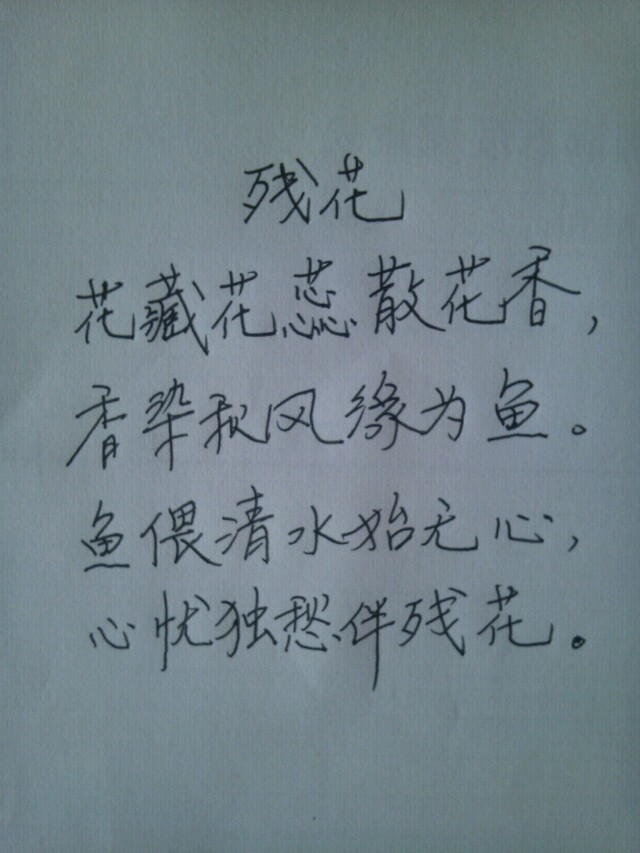 残花
花藏花蕊散花香，
香染秋风缘为鱼。
鱼偎清水始无心，
心忧独愁伴残花。